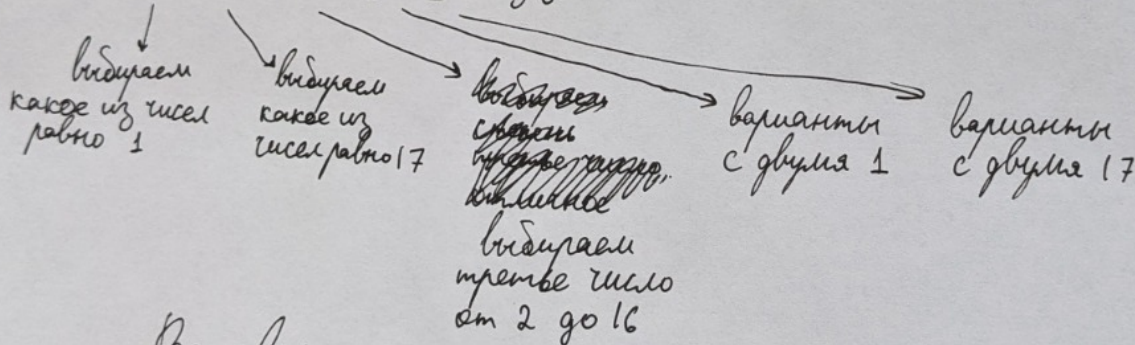 выбираем
какое из чисел
равно 1
выбираем
какое из
чисел равно 17
выбираем
третье число
от 2 до 16
варианты
с двумя 1
варианты
с двумя 17